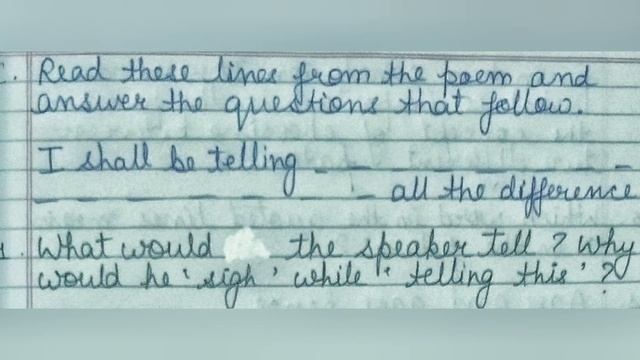 C. Read these lines from the poem and
answer the questions that follow.
I shall be telling _ _ _ _ _ _
_ _ _ _ _ _ _ all the difference
1. What would the speaker tell ? Why
would he 'sigh' while 'telling this' ?